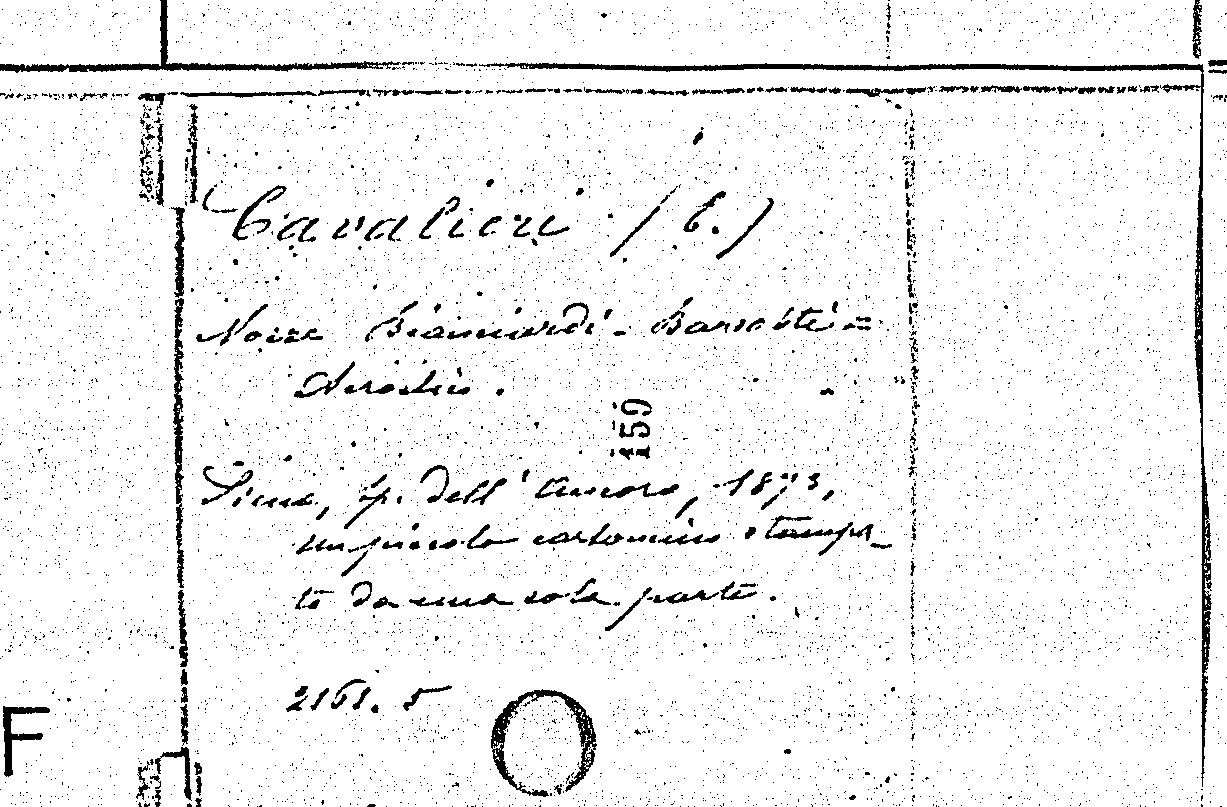 Cavalieri (C.)
Nozze Bianciardi - Barsotti =
Siena, tip. dell' Ancora, 1873,
un piccolo cartoncino stampa_
to da una sola parte.
2161. 5
159
F